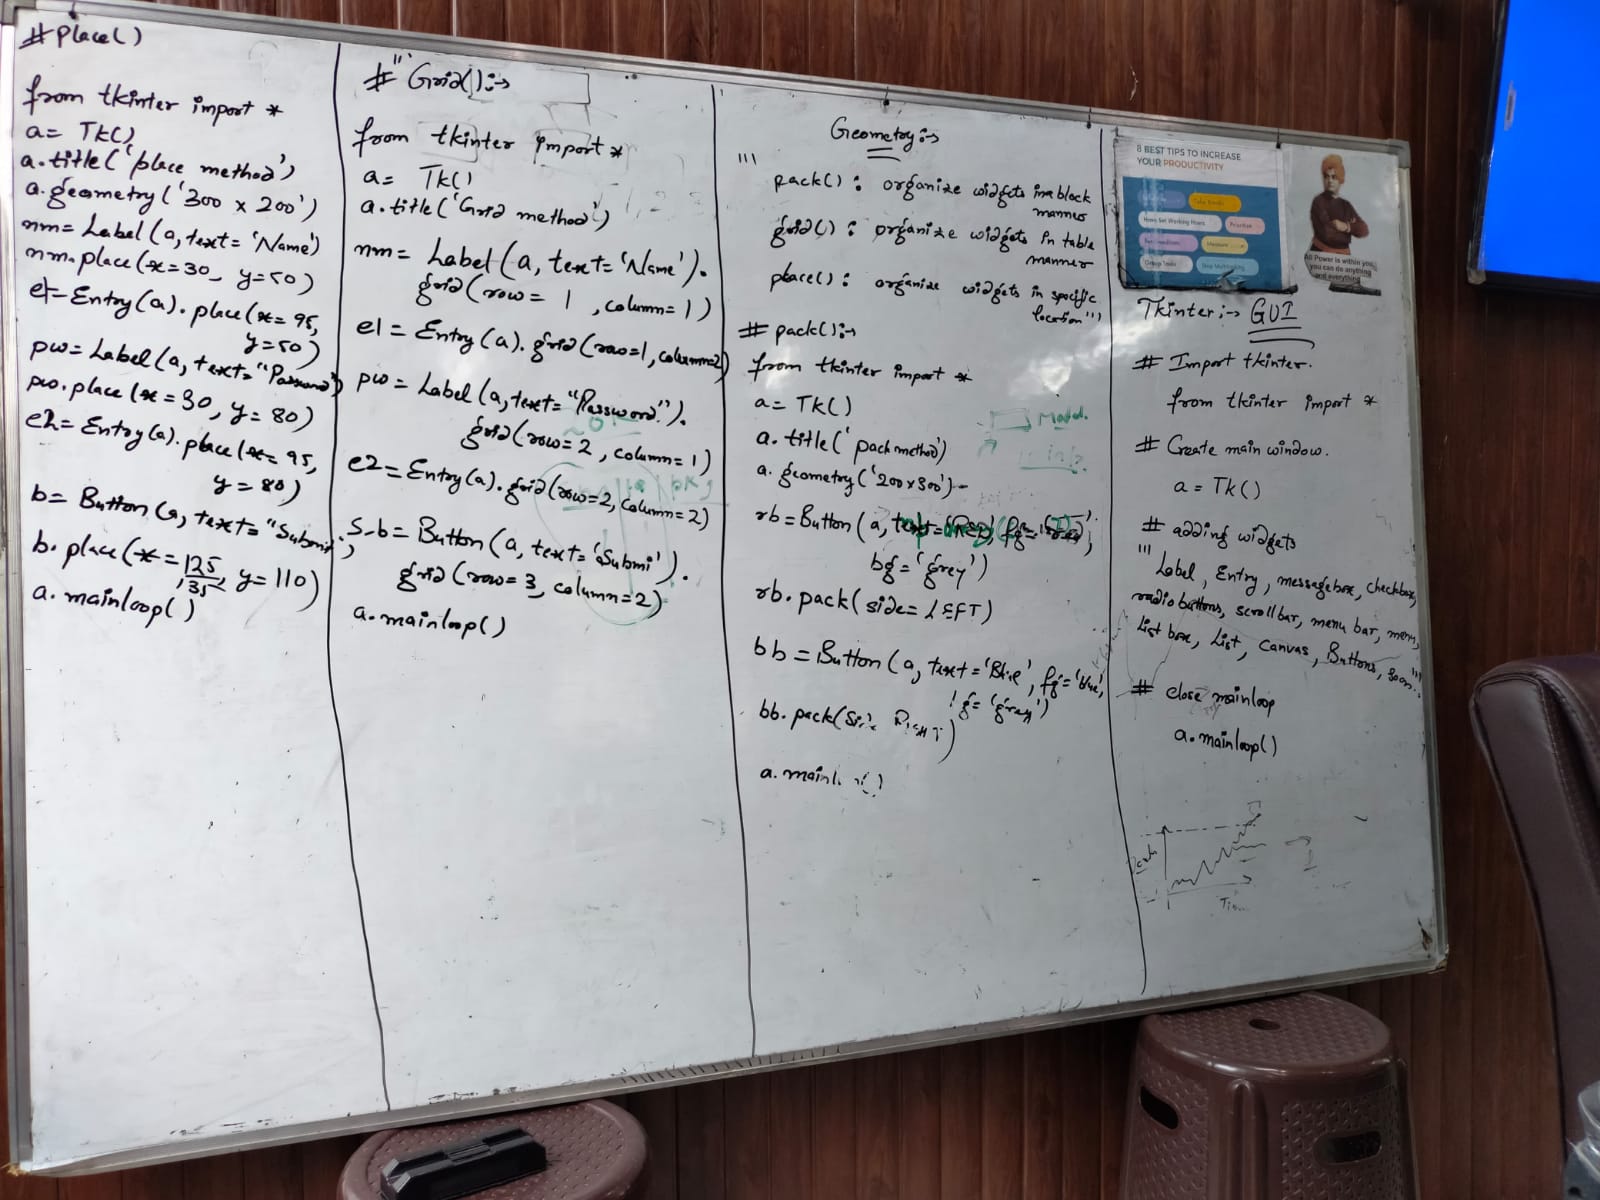 #Place()
from tkinter import *
a= Tk()
a.title('place method')
a.geometry('300 x 200')
nm= Label(a, text= 'Name')
nm.place(x=30, y=50)
e1=Entry(a).place(x=95,
y=50)
pw= Label(a, text="Password")
pw.place(x=30, y=80)
e2=Entry(a).place(x=95,
y=80)
b= Button(a, text="Submit
b.place(x=125, y=110)
35
a.mainloop()
# Grid():->
from tkinter import *
a= Tk()
a.title('Grid method')
nm= Label(a, text='Name').
grid(row= 1 ,column=1)
e1= Entry(a).grid(row=1,column=2)
pw= Label(a,text="Password").
grid(row=2 ,column=1)
e2=Entry(a).grid(row=2,column=2)
s_b= Button(a, text='Submi').
grid(row=3, column=2)
a.mainloop()
Geometry:->
'''
pack(): organize widgets in a block
manner
grid(): organize widgets in table
manner
place(): organize widgets in specific
location'''
# pack():->
from tkinter import *
a= Tk()
a.title('pack method')
a.geometry('200x300')
rb=Button(a, text='RED', fg='red',
bg='grey')
rb.pack(side=LEFT)
bb=Button(a, text='Blue', fg='blue',
g='grey')
bb.pack(
a.main
8 BEST TIPS TO INCREASE
YOUR PRODUCTIVITY
Take Breaks
Have Set Working Hours
Prioritize
Measure
Group Tasks
Stop Multitasking
All Power is within you,
you can do anything
and everything
Tkinter:-> GUI
# Import tkinter.
from tkinter import *
# Create main window.
a= Tk()
# adding widgets
'''Label, Entry, messagebox, checkbox,
radio buttons, scrollbar, menu bar, menu,
List box, List, Canvas, Buttons, soon..'''
# close mainloop
a.mainloop()